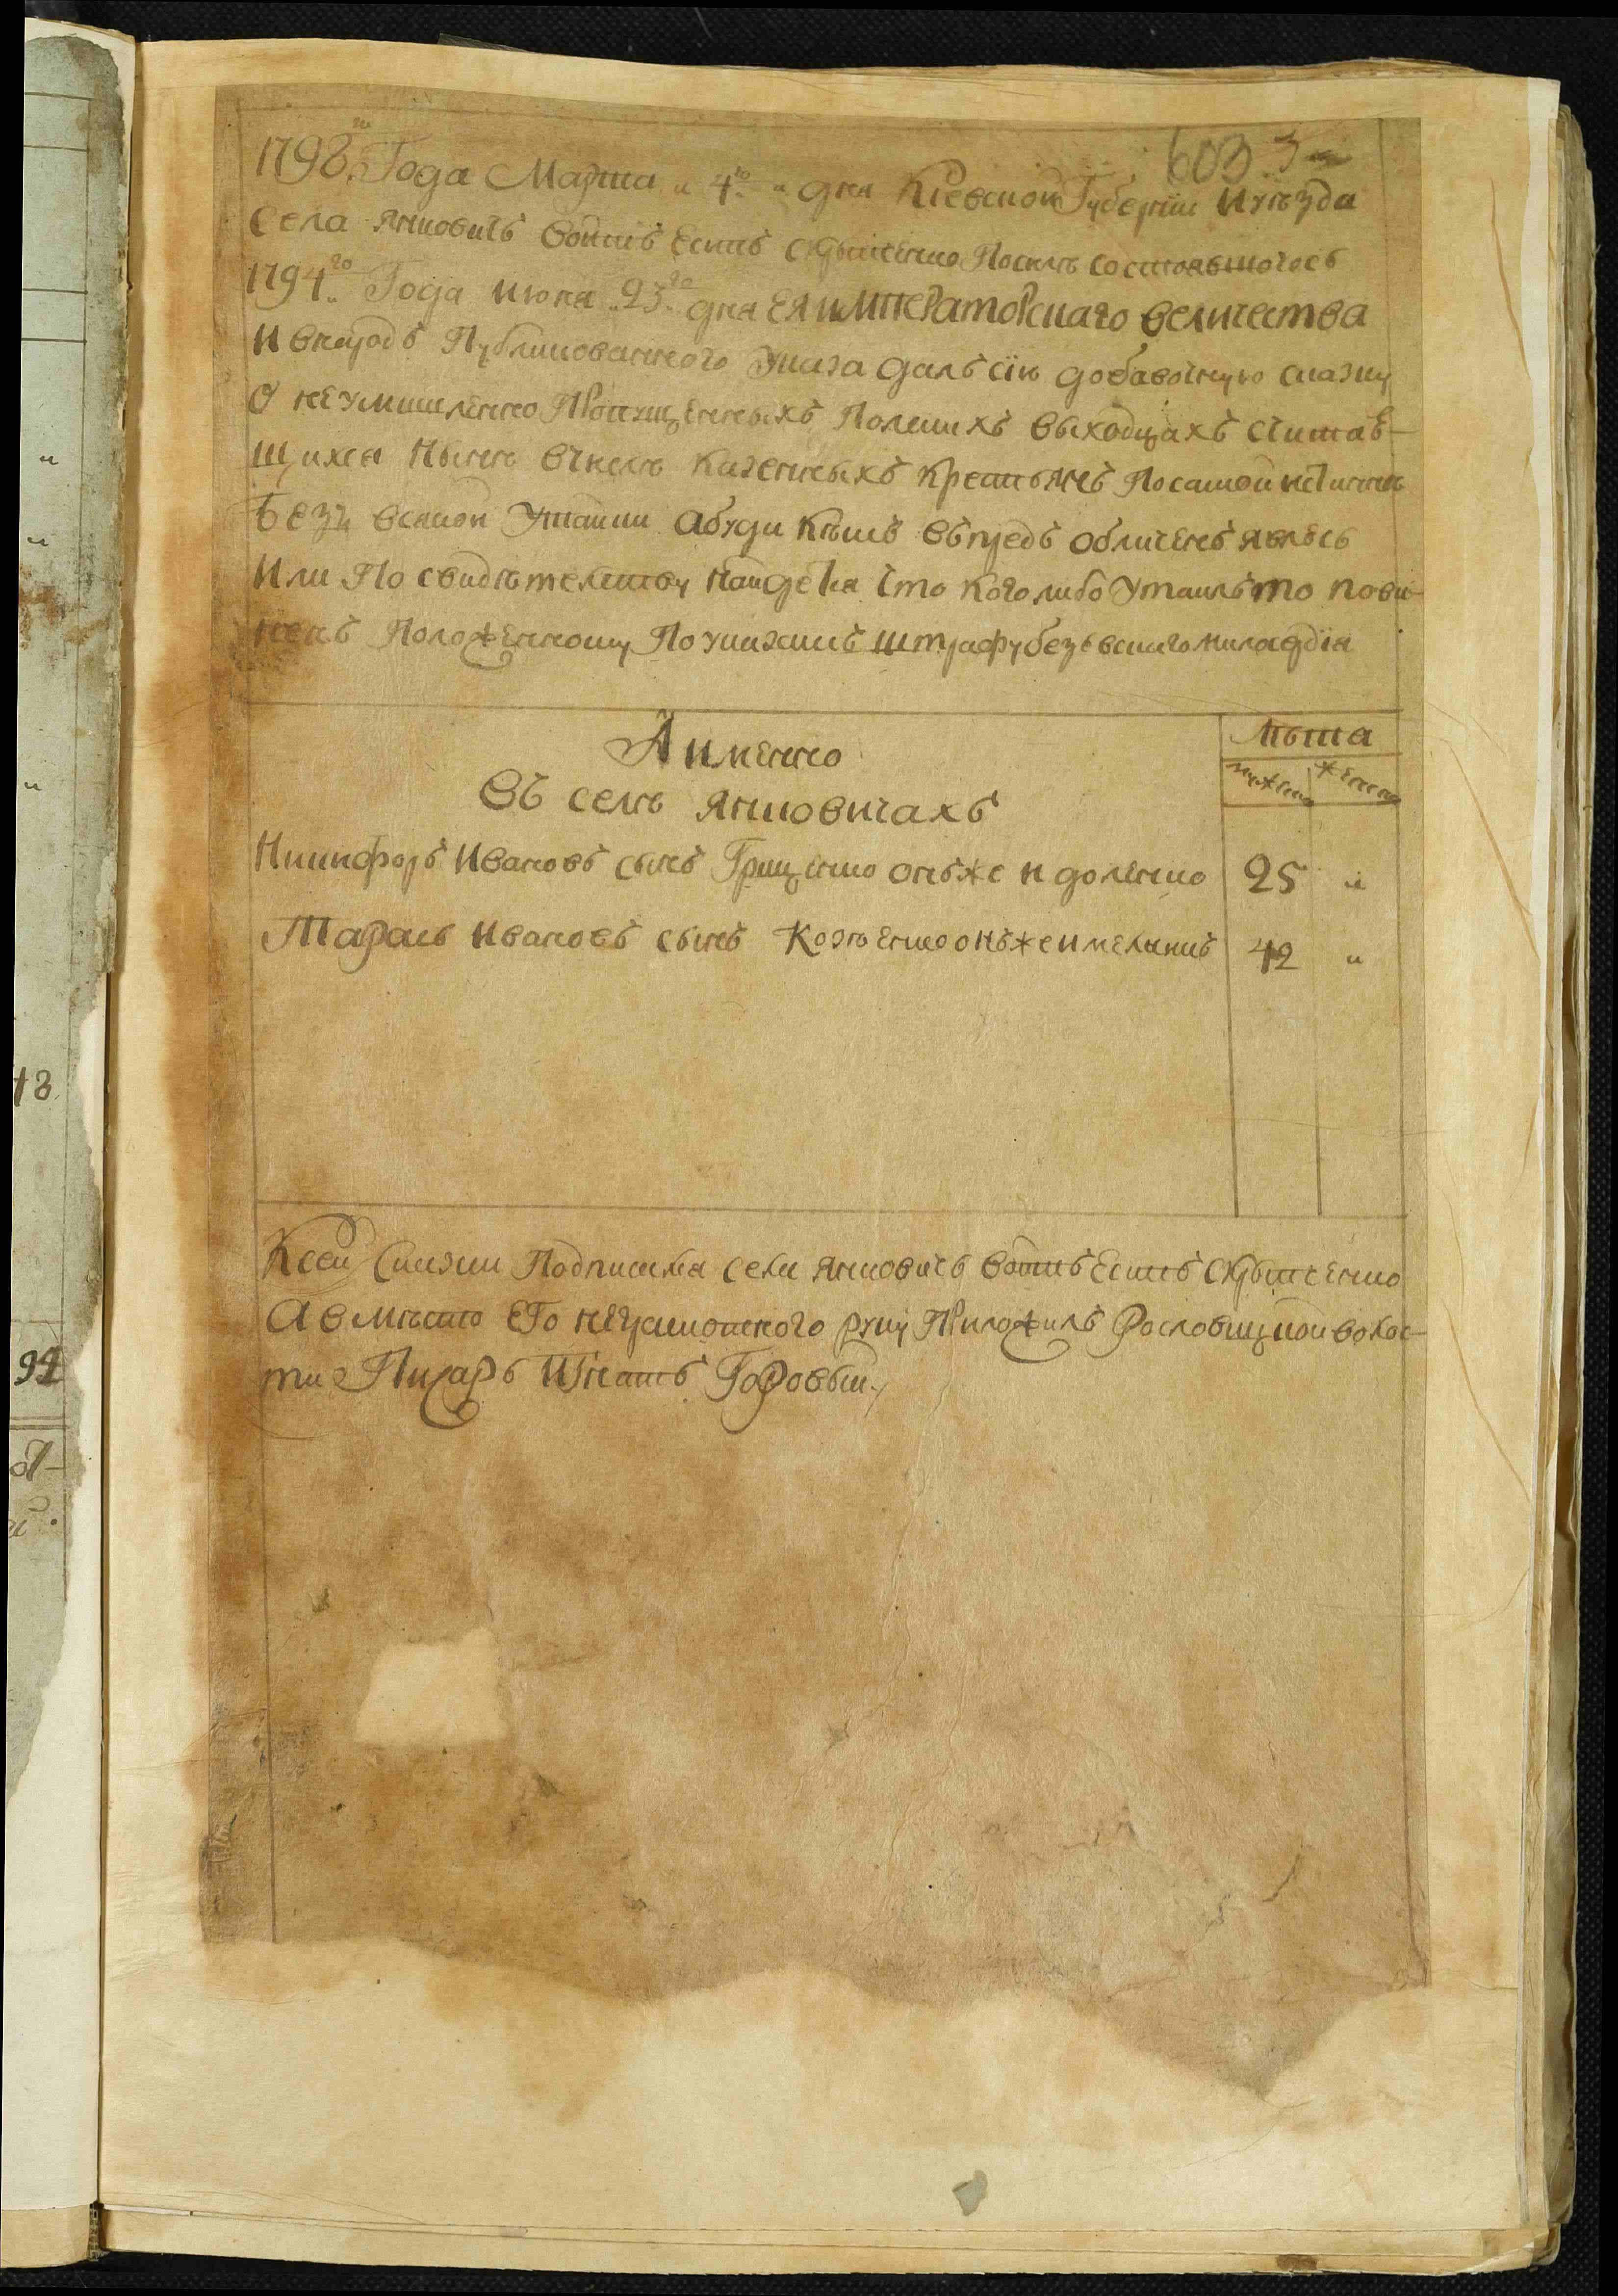 603 3
1798го Года Марта „ 4го „ дня Кіевской Губерніи И уѣзда
села янковичъ войтъ Естъ Посилѣ состоявшогось
1794го „ Года июня „23„го дня ЕЯ иМПЕРаторСкаго величества
И внародъ Публикованного Указа далъ сїю добавочную сказку
О неумишленно Пропущенныхъ Полскихъ выходцахъ считав-
щихся Нынѣ вчислѣ казенныхъ крестьянъ Посамой истиннѣ
Безъ всякой Утайки абуди кѣмъ въпредъ обличенъ явлюсь
Или По свидѣтелству найдется что кого либо Утаилъ то пови-
ненъ Положенному По указамъ штрафу безъ всякаго милосердїя
А именно
Въ селѣ янковичахъ
лѣта
мужеска женска
Никифоръ Ивановъ сынъ Грищенко онъже и доленко 25 „
Тарасъ Ивановъ сынъ Козѣенко онъже и мелникъ 42 „
Ксей Скаски Подписался села янковичъ войтъ Естъ
А вмѣсто Его неграмотного руку Приложилъ Рословицкой волос-
ти Писаръ Игнатъ Горовый
18
94